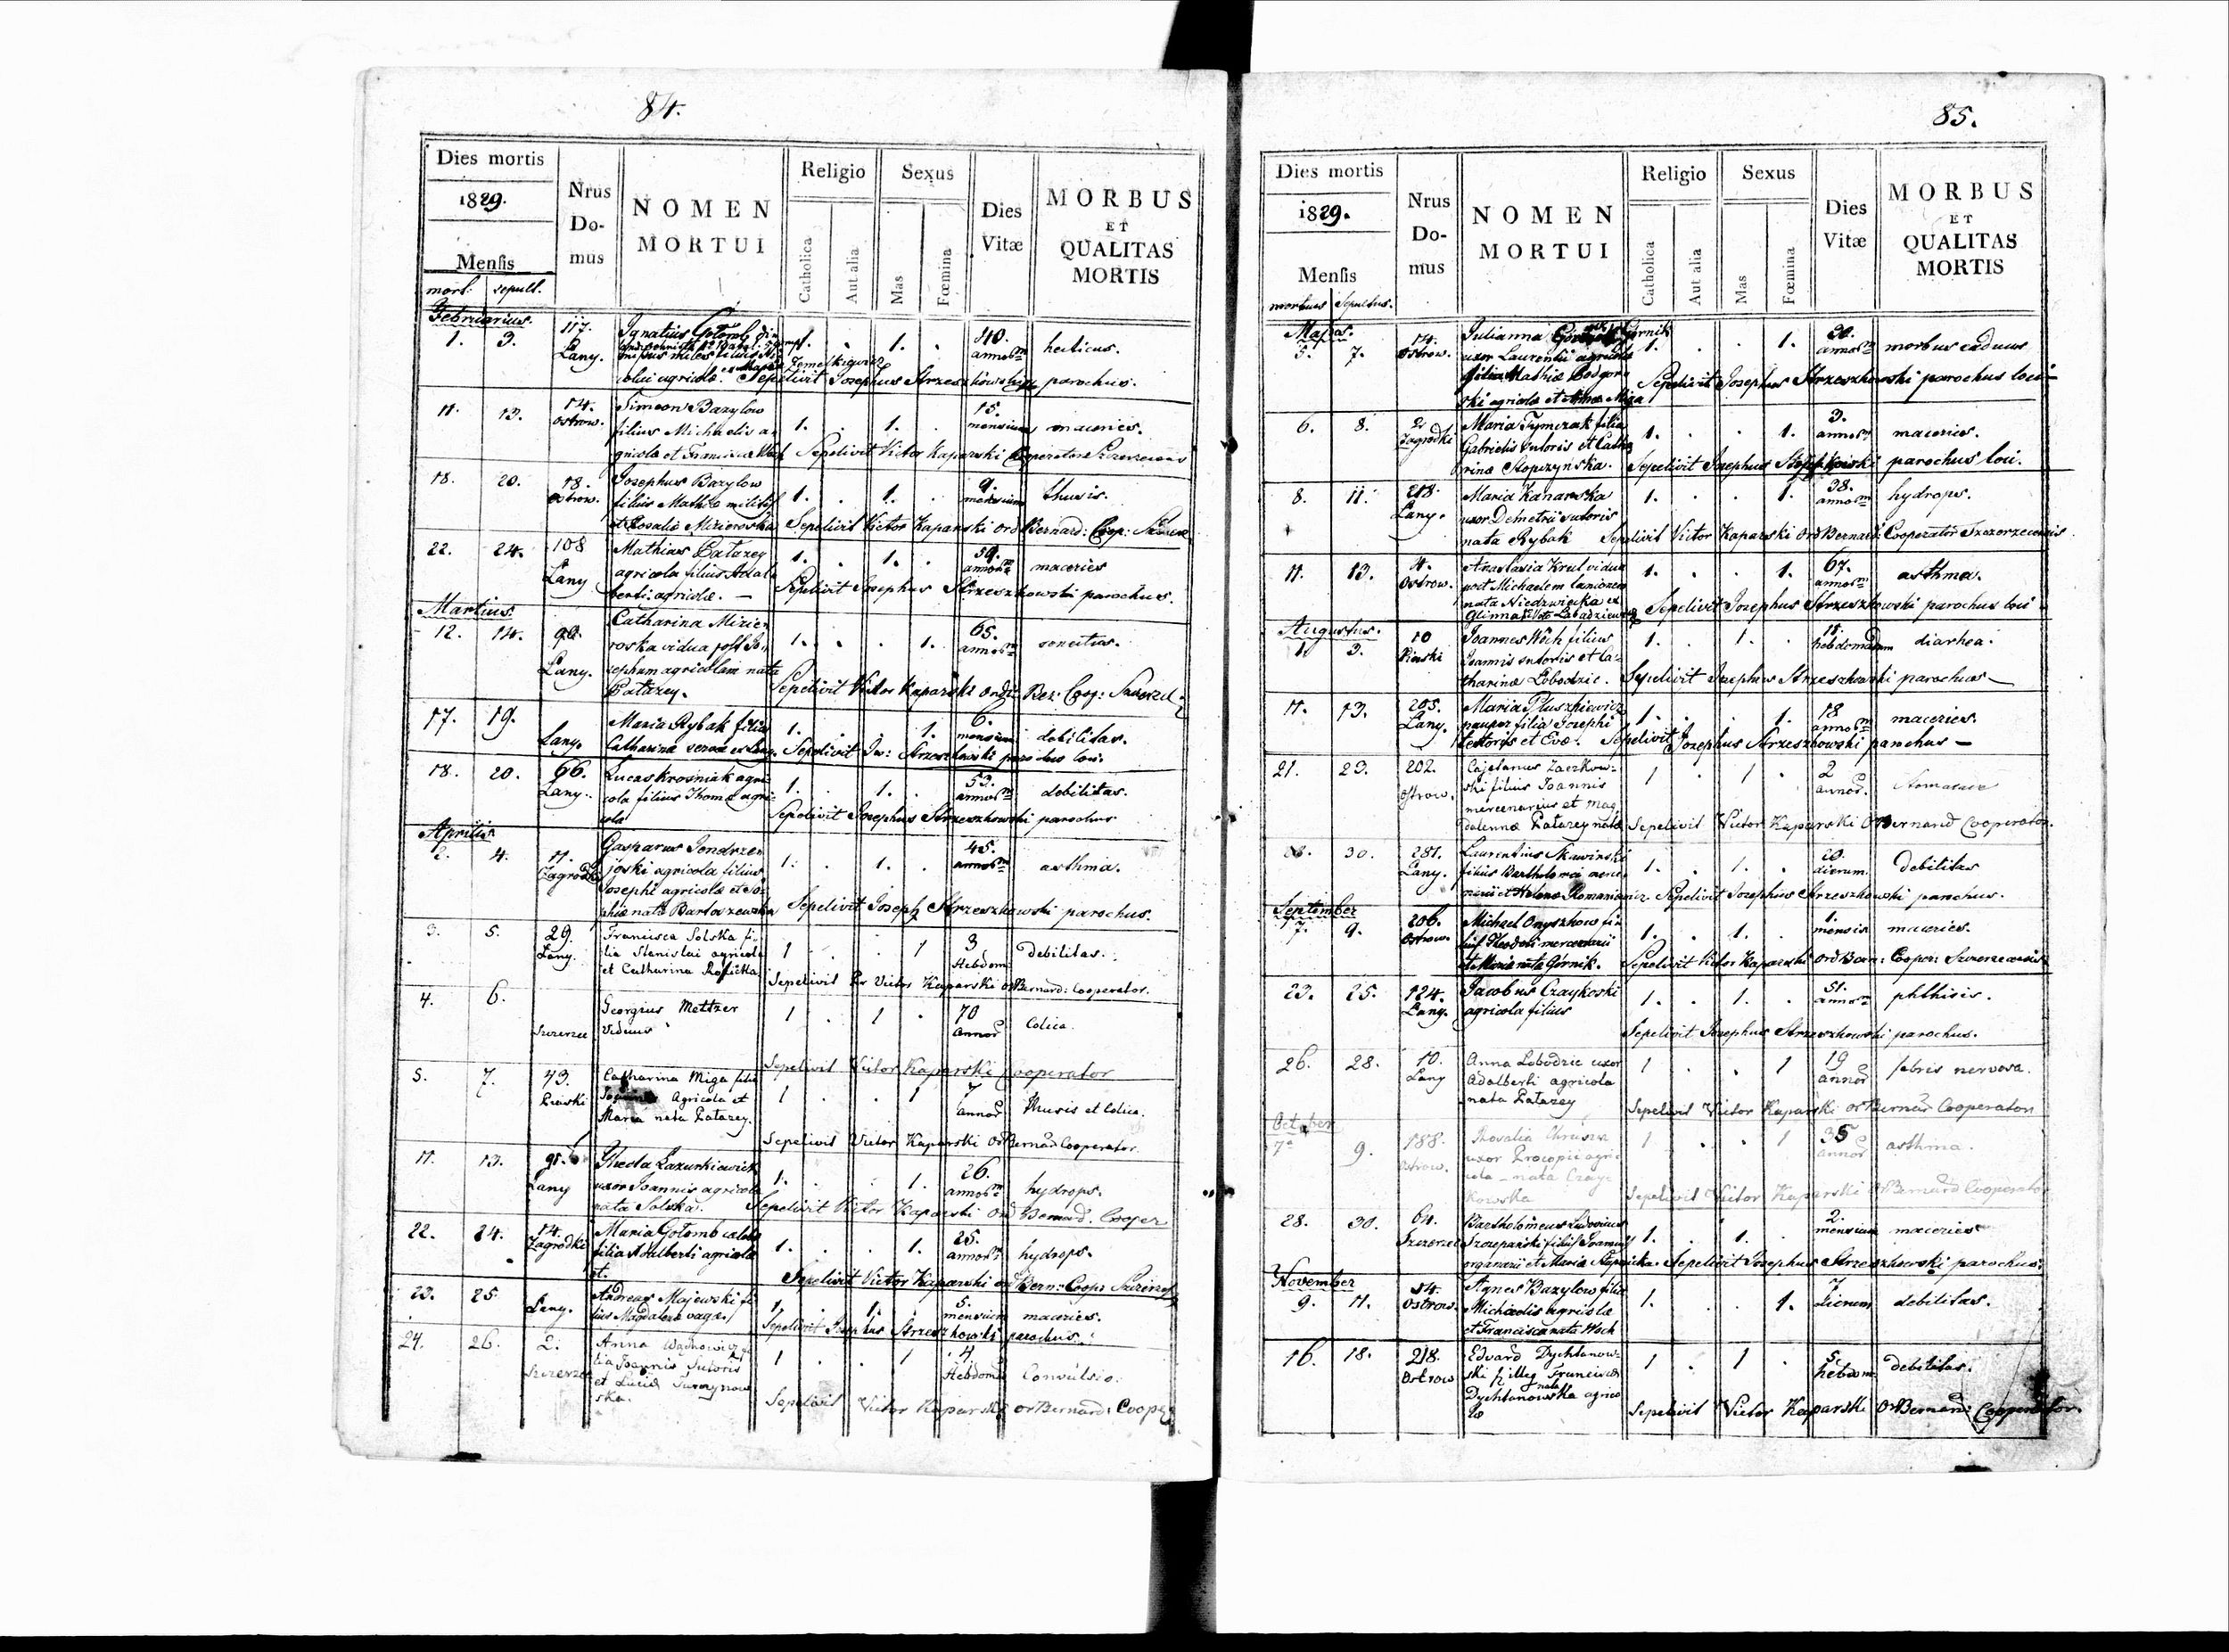 84.
Dies mortis
1829.
Mensis
mort. sepult.
Nrus Do- mus
NOMEN MORTUI
Religio
Catholica
Aut alia
Sexus
Mas
Fœmina
Dies Vitæ
MORBUS
ET
QUALITAS
MORTIS
Februarius.
1. 3. 117. Lany. Ignatius Gołomb 1. . 1. . annorm hecticus.
Sepelivit Josephus Strzeszkowski parochus.
11. 13. 14. Ostrow. Simeon Bazylow 1. . 1. . 15. mensium macries.
filius Michaelis a-
gricolæ et Franciscæ Woch Sepelivit Victor Kaparski Cooperator
18. 20. 18. Ostrow. Josephus Bazylow 1. . 1. . 9. mensium thusis.
filius Mathæ militis
et Rosaliæ Sepelivit Victor Kaparski Ord Bernard: Coop:
22. 24. 108 Lany Mathias Patazey 1. . 1. . 59. annorm macries
agricola filius Adal-
berti agricolæ. — Sepelivit Josephus Strzeszkowski parochus.
Martius.
12. 14. 90. Lany. Catharina Mizie- 1. . . 1. 65. annorm
roska vidua post Jo-
sephum agricolam nata
Patazey. Sepelivit Victor Kaparski Ord: Ber: Coop:
17. 19. Lany. Maria Rybak filia 1. . . 1. 6. mensium debilitas.
Catharinæ servæ ex Lany. Sepelivit Jos: Strzeszkowski parochus loci.
18. 20. 66. Lany. Lucas Krosniak agri- 1. . 1. . 53. annorm debilitas.
cola filius Thomæ agri-
colæ Sepelivit Josephus Strzeszkowski parochus
Aprilis
2. 4. 11. Zagrodki Gasparus Jendrze- 1. . 1. . 45. annorm asthma.
joski agricola filius
Josephi agricolæ et So-
phiæ nata Bartoszewska Sepelivit Joseph Strzeszkowski parochus.
3. 5. 29. Lany. Francisca Solska fi- 1 . . 1 3 Hebdom debilitas.
lia Stanislai agricolæ
et Catharina Sepelivit Victor Kaparski Or Bernard: Cooperator.
4. 6. Szczerzec Georgius Meltzer 1 . 1 . 70 annor Colica.
Viduus
Sepelivit Victor Kaparski Cooperator
5. 7. 43. Piaski Catharina Miga filia 1 . . 1 7 annor thusis et Colica.
Agricola et
Maria nata Patazey. Sepelivit Victor Kaparski Or Bernard Cooperator.
11. 13. 91. Lany Thecla Lazurkiewicz 1. . . 1. 26. annorm hydrops.
uxor Joannis agricolæ
nata Solska. Sepelivit Victor Kaparski Ord Bernard. Cooper
22. 24. 14. Zagrodki Maria Gołomb cælebs 1. . . 1. 25. annorm hydrops.
filia Adalberti agricolæ
et. Sepelivit Victor Kaparski ord Bern: Coop:
23. 25 Lany. Andreas Majewski fi- 1. . 1. . 5. mensium macries.
lius Magdalenæ vagæ. Sepelivit Josephus Strzeszkowski parochus.
24. 26. 2. Szczerzec Anna 1 . . 1 4 Hebdom Convulsio.
lia Joannis Sutoris
et Lucia
ska. Sepelivit Victor Kaparski or Bernard: Cooper
85.
Dies mortis
1829.
Mensis
mortuus Sepultus.
Nrus Do- mus
NOMEN MORTUI
Religio
Catholica
Aut alia
Sexus
Mas
Fœmina
Dies Vitæ
MORBUS
ET
QUALITAS
MORTIS
Majus.
5. 7. 14. Ostrow. Julianna Górnik 1. . . 1. annorm morbus caducus
uxor Laurentii agricolæ
filia Mathiæ Podgor-
ski agricolæ et Annæ Miga Sepelivit Josephus Strzeszkowski parochus loci
6. 8. 2 Zagrodki Maria Tymczak filia 1. . . 1. 3. annorm macries.
Gabrielis sutoris et Catha-
rinæ Stopzynska. Sepelivit Josephus parochus loci.
8. 11. 218. Lany. Maria Kanarska 1. . . 1. 38. annorm hydrops.
uxor Demetrii sutoris
nata Rybak Sepelivit Victor Kaparski Ord Bernard: Cooperator Szczerzecensis
11. 13. 4. Ostrow. Anastasia Krul vidua 1. . . 1. 67. annorm asthma.
post Michaelem lanionem
nata Niedzwiecka ex
Glinna Sepelivit Josephus Strzeszkowski parochus loci
Augustus.
1. 3. 10 Piaski Joannes Woch filius 1. . 1. . 15. hebdomadum diarhea.
Joannis sutoris et Ca-
tharinæ Lobodzic. Sepelivit Josephus Strzeszkowski parochus —
11. 13. 205. Lany. Maria Pluszkiewicz 1. . . 1. 18 annorm macries.
pauper filia Josephi
textoris et Evæ. Sepelivit Josephus Strzeszkowski parochus —
21. 23. 202. Ostrow. Cajetanus Zaczkow- 1 . 1 . 2 annor.
ski filius Joannis
mercenarius et Mag
dalennæ Patazey natæ Sepelivit Victor Kaparski Or Bernard Cooperator.
28. 30. 281. Lany. Laurentius Skawinski 1. . 1. . 20. dierum debilitas
filius Bartholomei merce-
narii et Helenæ Romaniewicz. Sepelivit Josephus Strzeszkowski parochus.
September
7. 9. 206. Ostrow. Michael Onyszkow fi- 1. . 1. . 1. mensis macries.
lius Theodosi mercenarii
et Maria nata Górnik. Sepelivit Victor Kaparski Ord Bern: Cooper: Szczerzecensis
23. 25. 124. Lany. Jacobus Czaykoski 1. . 1. . 51. annorm phthisis.
agricola filius
Sepelivit Josephus Strzeszkowski parochus.
26. 28. 10. Lany Anna Lobodzic uxor 1 . . 1 19 annor febris nervosa.
Adalberti agricola
nata Patazey Sepelivit Victor Kaparski Or Bernar Cooperator
October
7a 9. 188. Ostrow. Rosalia 1 . . 1 35 annor asthma.
uxor Procopii agri-
cola – nata Czay-
kowska Sepelivit Victor Kaparski Or Bernard Cooperator
28. 30. 64. Szczerzec Bartholomeus Ludovicus 1. . 1. . 2. mensium macries
Szczepański filius Joannis
organarii et Maria Sepelivit Josephus Strzeszkowski parochus.
November
9. 11. 14. Ostrow. Agnes Bazylow filia 1. . . 1. 7 dierum debilitas.
Michaelis agricolæ
et Francisca nata Woch
16. 18. 218. Ostrow Edvard Dychtanow- 1 . 1 . 5 hebdom debilitas.
ski f illeg Francisca
nata
Dychtanowska agrico
læ Sepelivit Victor Kaparski Or Bernard: Cooperator.